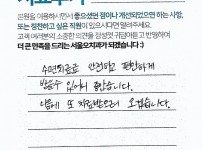 본원을 이용하시면서 좋으셨던 점이나 개선되었으면 하는 사항,
또는 칭찬하고 싶은 직원이 있으시다면 알려주세요.
고객 여러분의 소중한 의견을 정성껏 귀담아듣고 반영하여
더 큰 만족을 드리는 서울오치과가 되겠습니다 :)
수면치료로 안전하고 편안하게
받을수 있어서 좋았습니다.
다음에 또 치료받으러 오겠습니다.